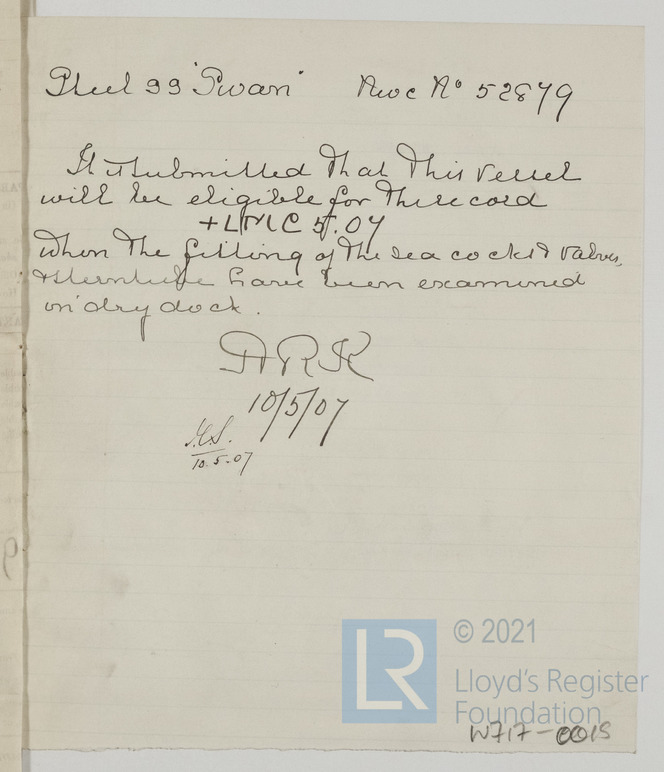 Steel SS "Swan" Nwc No 52879
It is submitted that this vessel
will be eligible for the record
+LMC 5.07
when the fitting of the sea cocks & valves,
& sterntube have been examined
in dry dock.
10/5/07
10.5.07
LR
© 2021
Lloyd's Register
Foundation
W717-0015